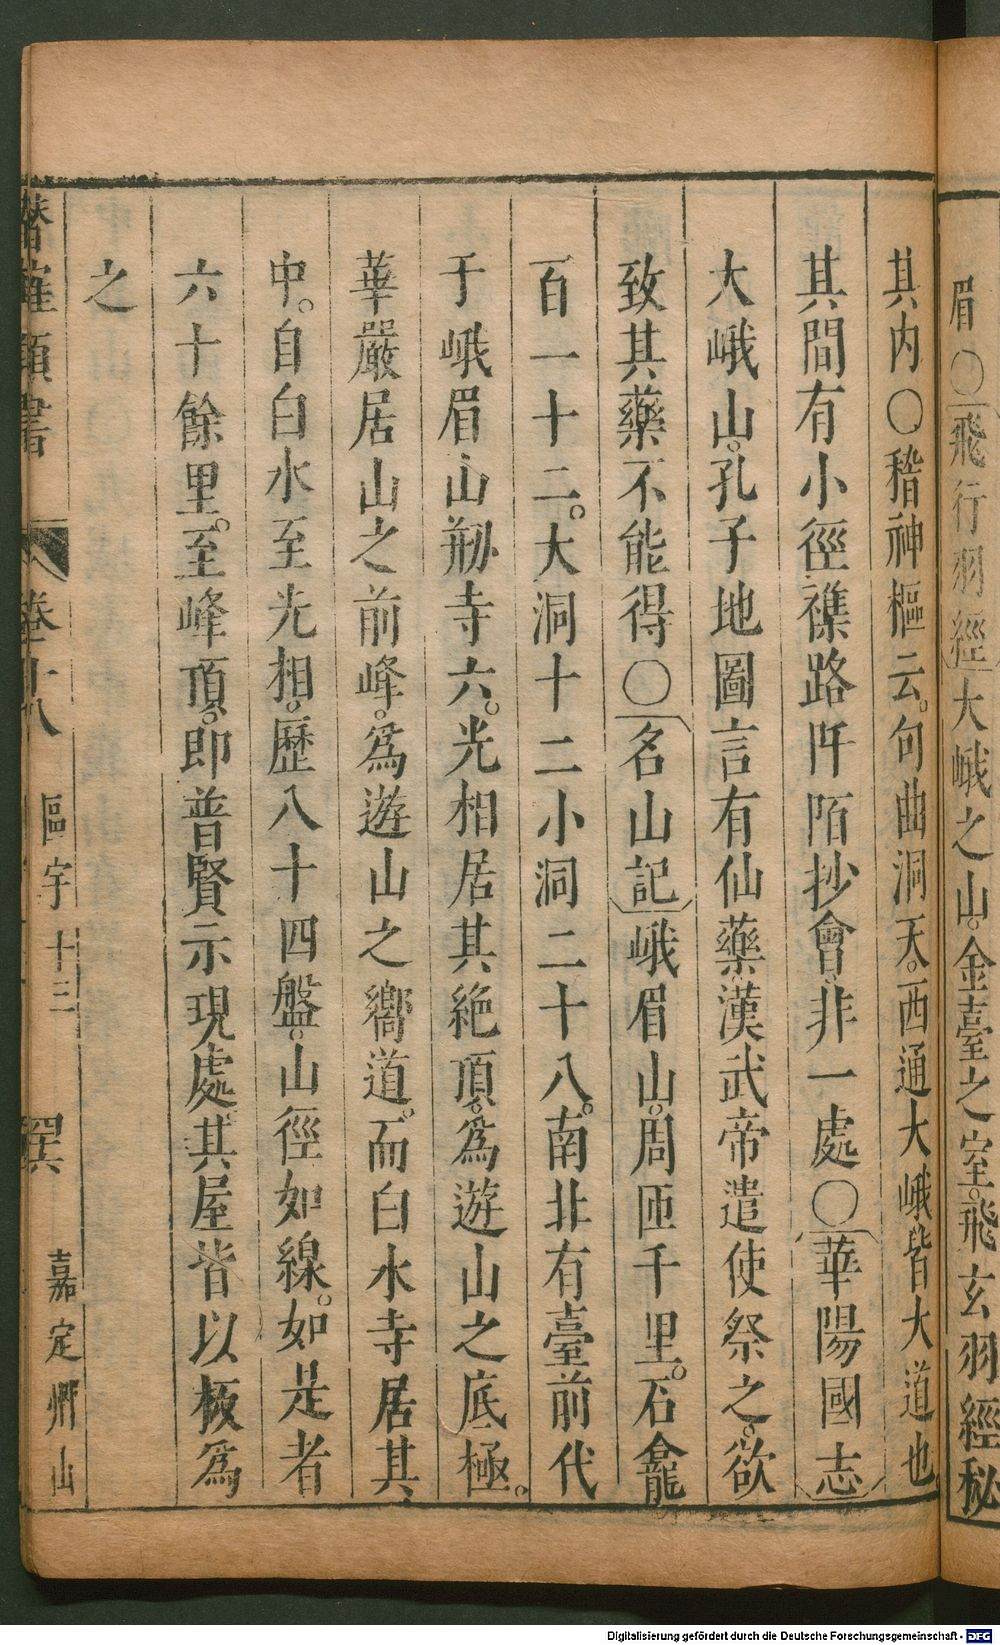 眉〇飛行羽經大峨之山。金臺之室。飛玄羽經秘
其内〇稽神樞云。句曲洞天。西通大峨皆大道也
其間有小徑襍路阡陌抄會。非一處〇華陽國志
大峨山。孔子地圖言有仙藥。漢武帝遣使祭之。欲
致其藥不能得〇名山記峨眉山。周匝千里。石龕
百一十二。大洞十二小洞二十八。南北有臺前代
于峨眉山剏寺六。光相居其絶頂。爲遊山之底極。
華嚴居山之前峰。爲遊山之嚮道。而白水寺居其
中。自白水至光相。歷八十四盤。山徑如線。如是者
六十餘里。至峰頂。即普賢示現處。其屋皆以板爲
之
潛確類書 卷十八 區宇十三 嘉定州山
Digitalisierung gefördert durch die Deutsche Forschungsgemeinschaft - DFG